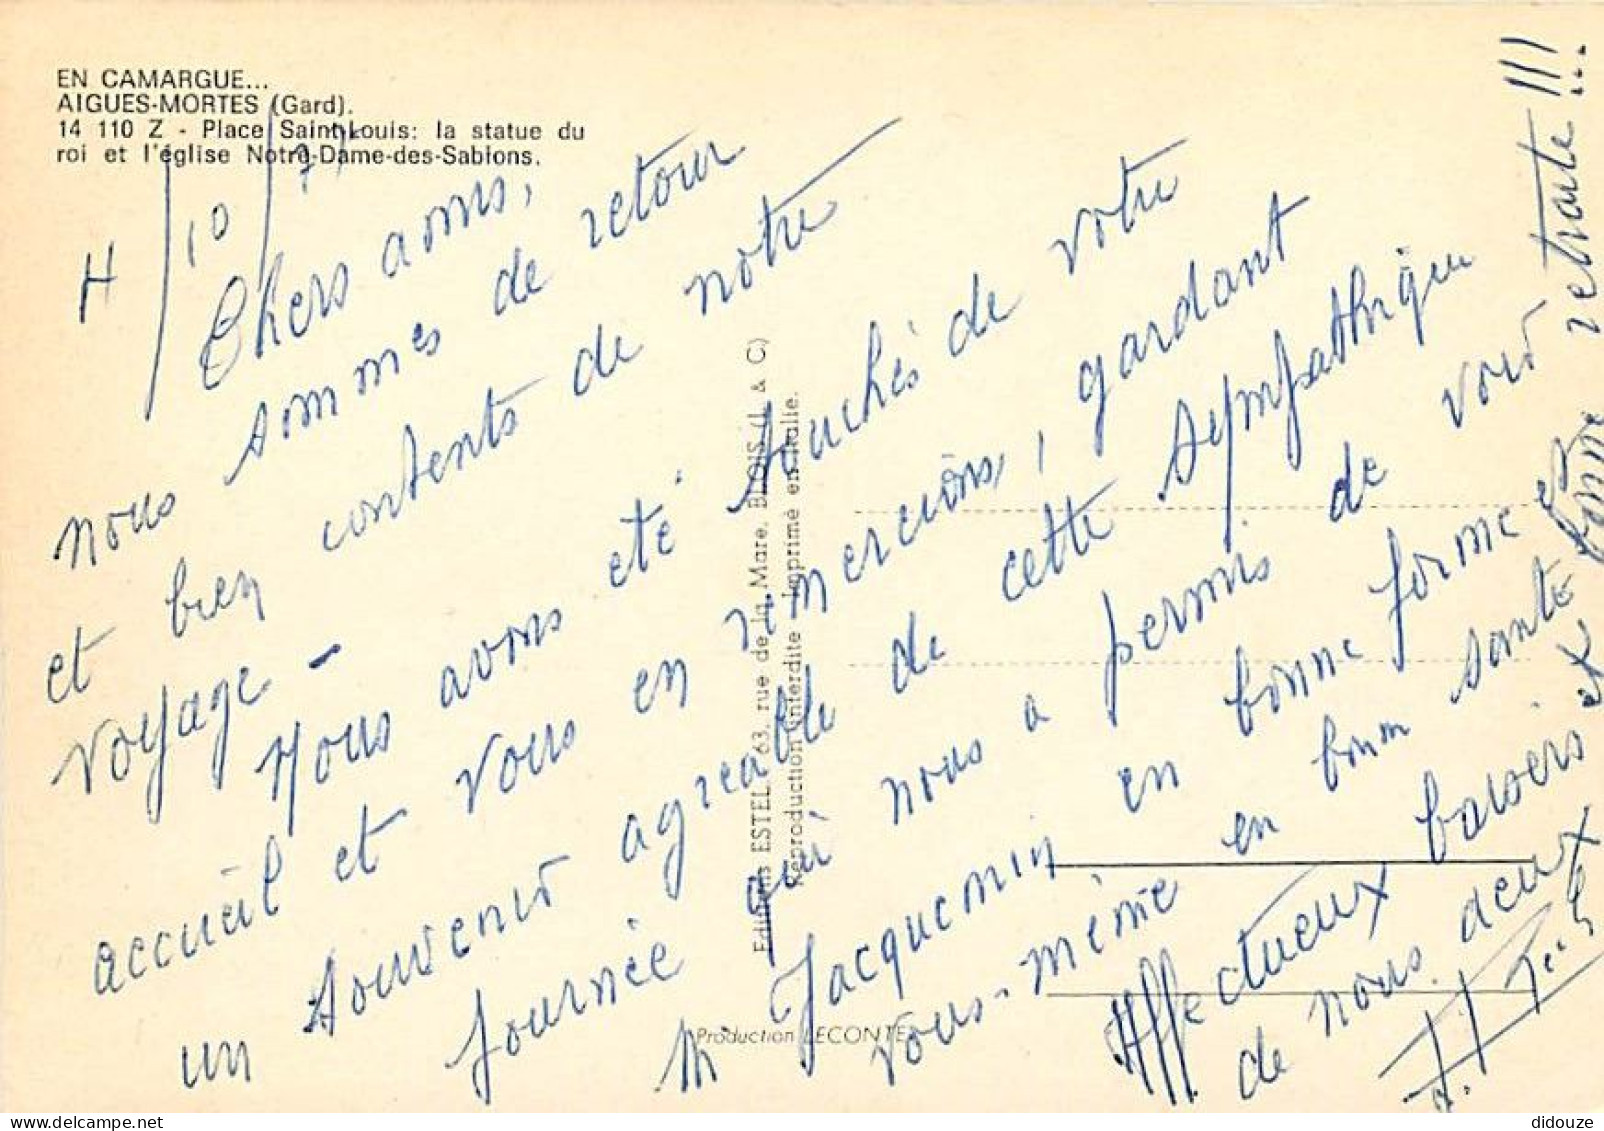 EN CAMARGUE...
AIGUES-MORTES (Gard).
14 110 Z - Place Saint-Louis: la statue du
roi et l'église Notre-Dame-des-Sablons.
4/10/77
Chers amis,
nous sommes de retour
et bien contents de notre
voyage -
Nous avons été touchés de votre
accueil et vous en remercions, gardant
un souvenir agréable de cette sympathique
journée qui nous a permis de voir
M. Jacquemin en bonne forme et
vous-même en bonne santé
Affectueux baisers
de nous deux
et bonne retraite !!!
Editions ESTEL, 63, rue de la Mare. BLOIS (L. & C)
Reproduction interdite - Imprimé en Italie.
Production LECONTE
didouze